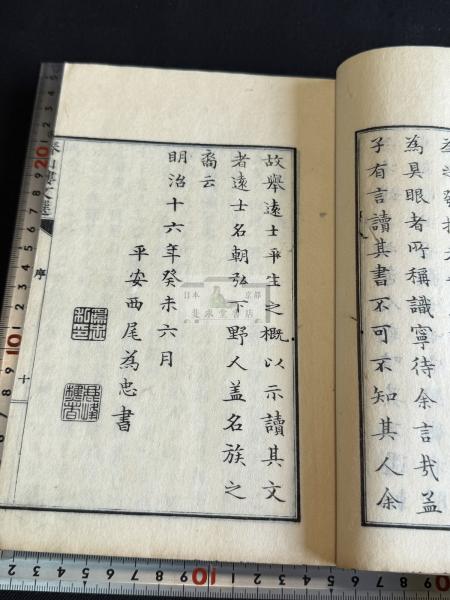 為具眼者所稱識寧待余言哉盖
子有言讀其書不可不知其人余
故舉遠士平生之概以示讀其文
者遠士名朝弘下野人盖名族之
裔云
明治十六年癸未六月
平安西尾為忠書
序
十
日本
京都
書店